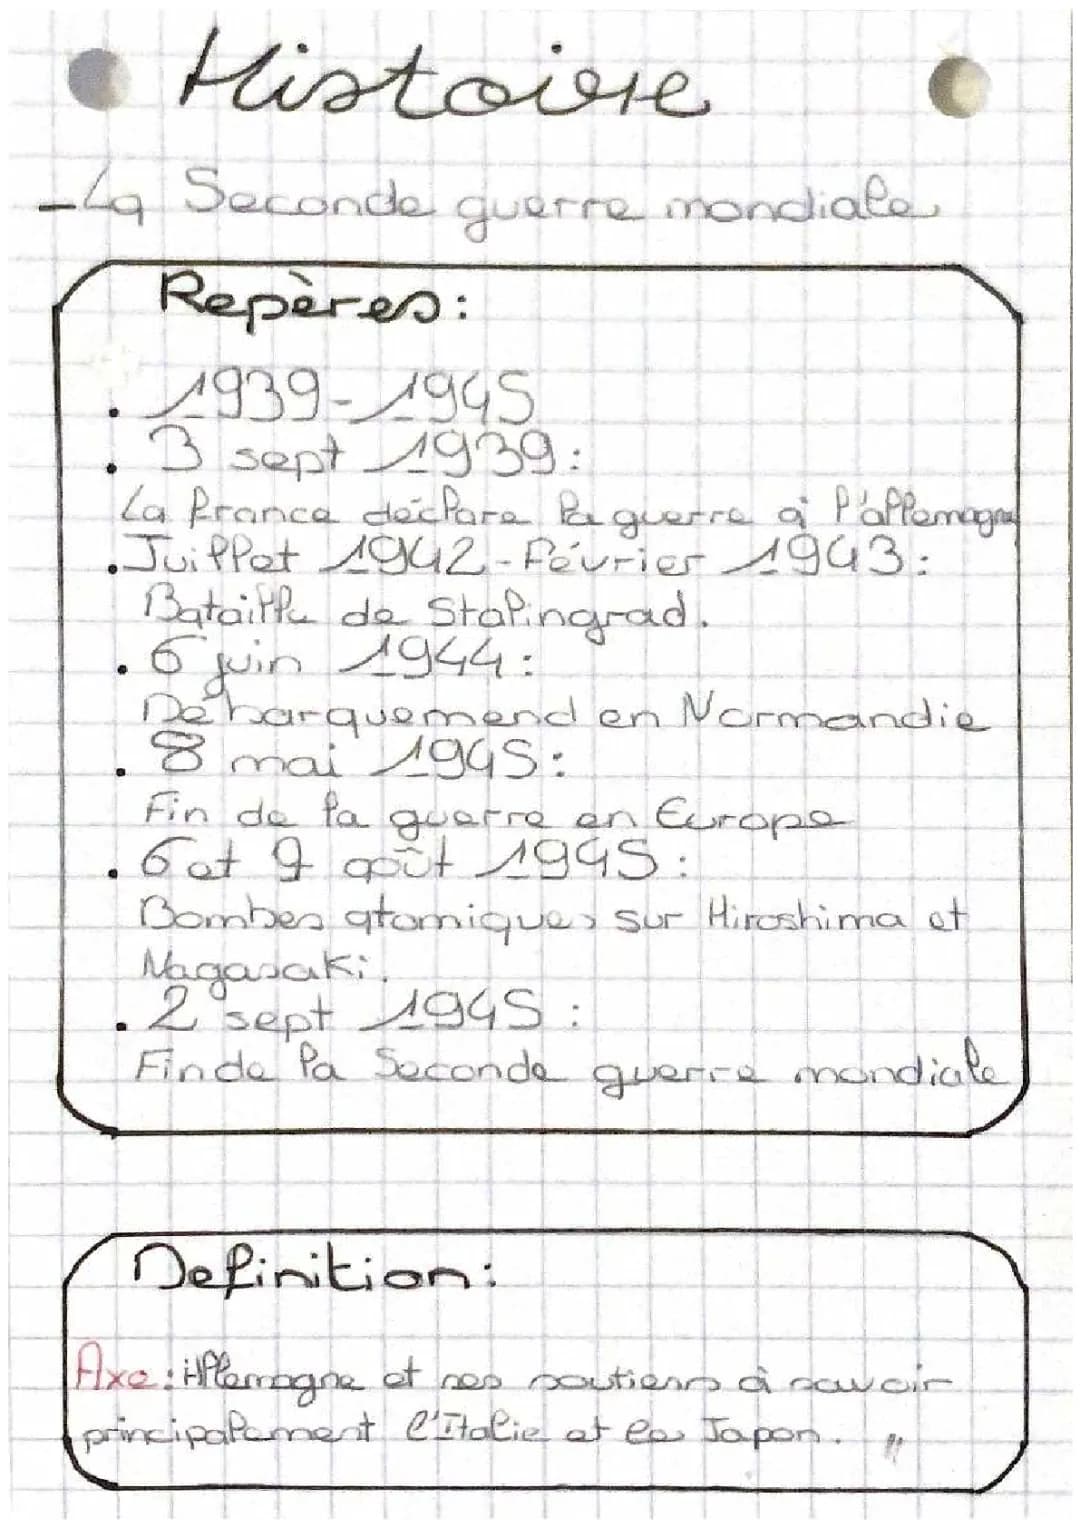 Histoire
- La Seconde guerre mondiale
Repères:
. 1939-1945
. 3 sept 1939:
La france déclare la guerre à l'allemagne
. Juillet 1942 - Février 1943:
Bataille de Stalingrad.
. 6 juin 1944:
Débarquemend en Normandie
. 8 mai 1945:
Fin de la guerre en Europe
. 6 et 9 août 1945:
Bombes atomiques sur Hiroshima et
Nagasaki.
. 2 sept 1945:
Fin de la Seconde guerre mondiale
Definition:
Axe: Allemagne et ses soutiens à savoir
principalement l'Italie et le Japon. "